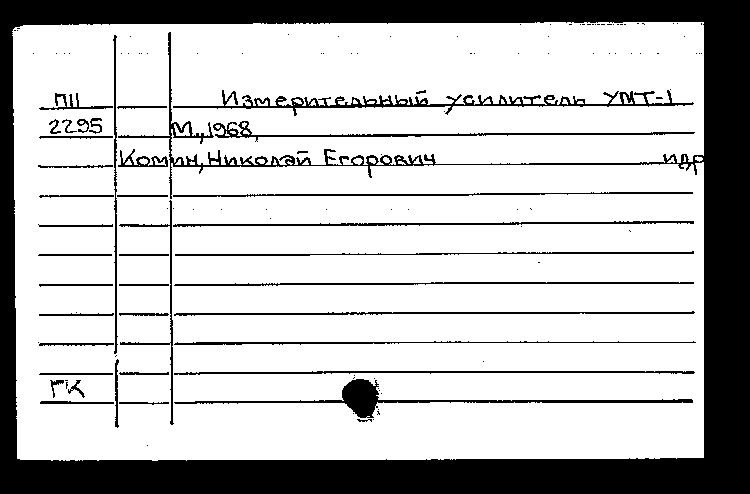 П11 Измерительный усилитель УМТ-1
2295 М., 1968,
Комин, Николай Егорович идр
ГК